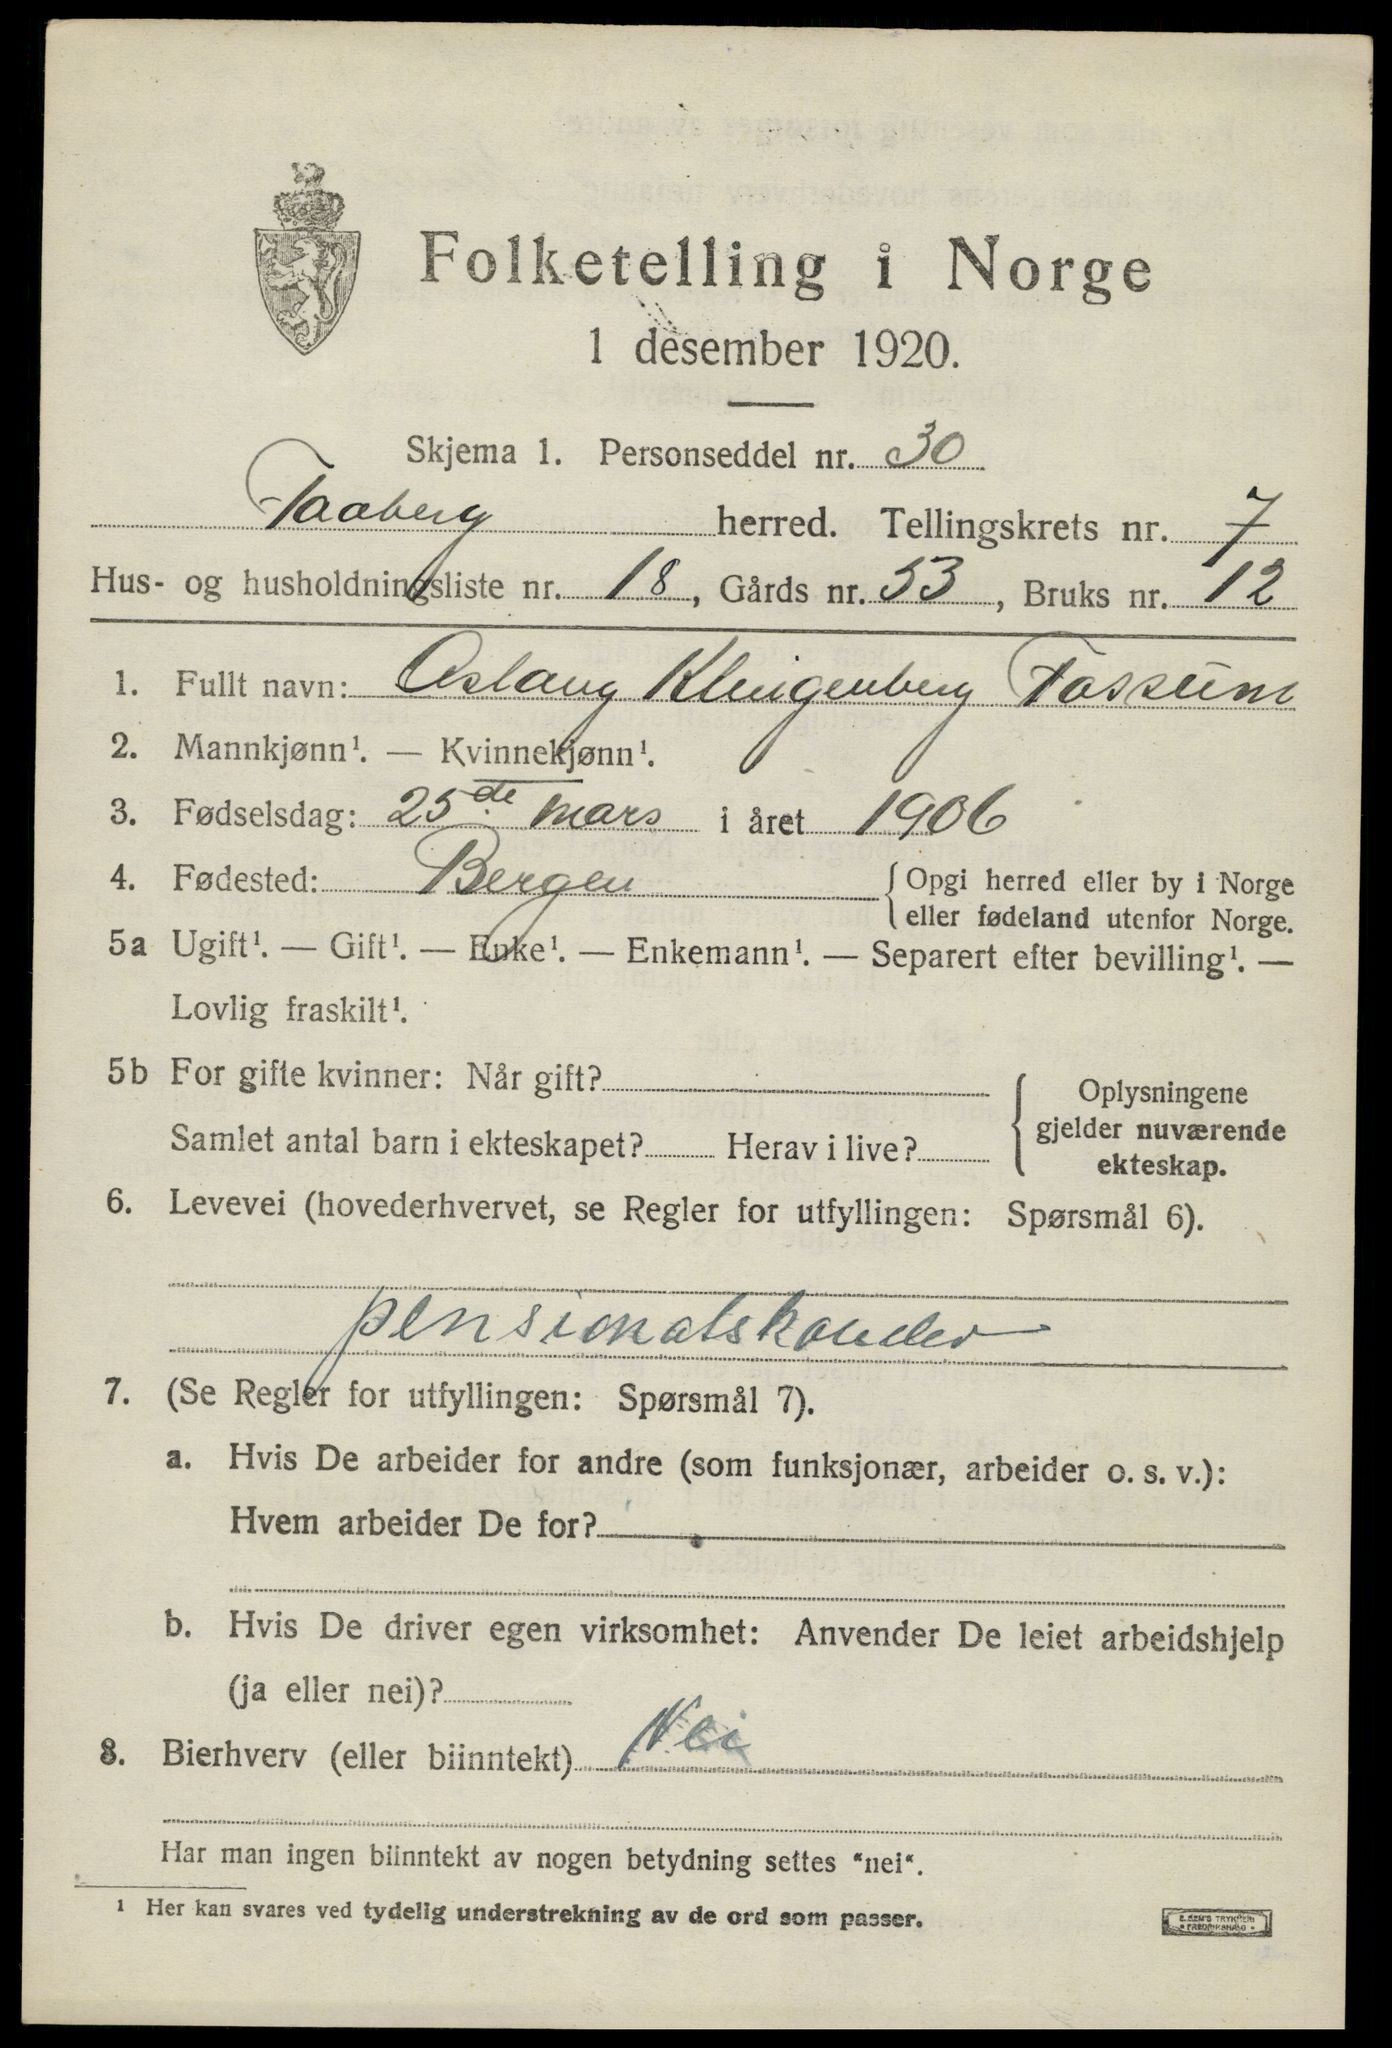 Folketelling i Norge
1 desember 1920.
Skjema 1. Personseddel nr. 30
Faaberg herred. Tellingskrets nr. 7
Hus- og husholdningsliste nr. 18, Gårds nr. 53, Bruks nr. 12
1. Fullt navn: Aslaug Klingenberg Fossum
2. Mannkjønn¹. — Kvinnekjønn¹.
3. Fødselsdag: 25de mars i året 1906
4. Fødested: Bergen {Opgi herred eller by i Norge
eller fødeland utenfor Norge.
5a Ugift¹. — Gift¹. — Enke¹. — Enkemann¹. — Separert efter bevilling¹. —
Lovlig fraskilt¹.
5b For gifte kvinner: Når gift?
Samlet antal barn i ekteskapet? Herav i live?
{Oplysningene
gjelder nuværende
ekteskap.
6. Levevei (hovederhvervet, se Regler for utfyllingen: Spørsmål 6).
pensionatskunder
7. (Se Regler for utfyllingen: Spørsmål 7).
a. Hvis De arbeider for andre (som funksjonær, arbeider o. s. v.):
Hvem arbeider De for?
b. Hvis De driver egen virksomhet: Anvender De leiet arbeidshjelp
(ja eller nei)?
8. Bierhverv (eller biinntekt) Nei
Har man ingen biinntekt av nogen betydning settes "nei".
¹ Her kan svares ved tydelig understrekning av de ord som passer.
E. SEM'S TRYKKERI
FREDRIKSHALD